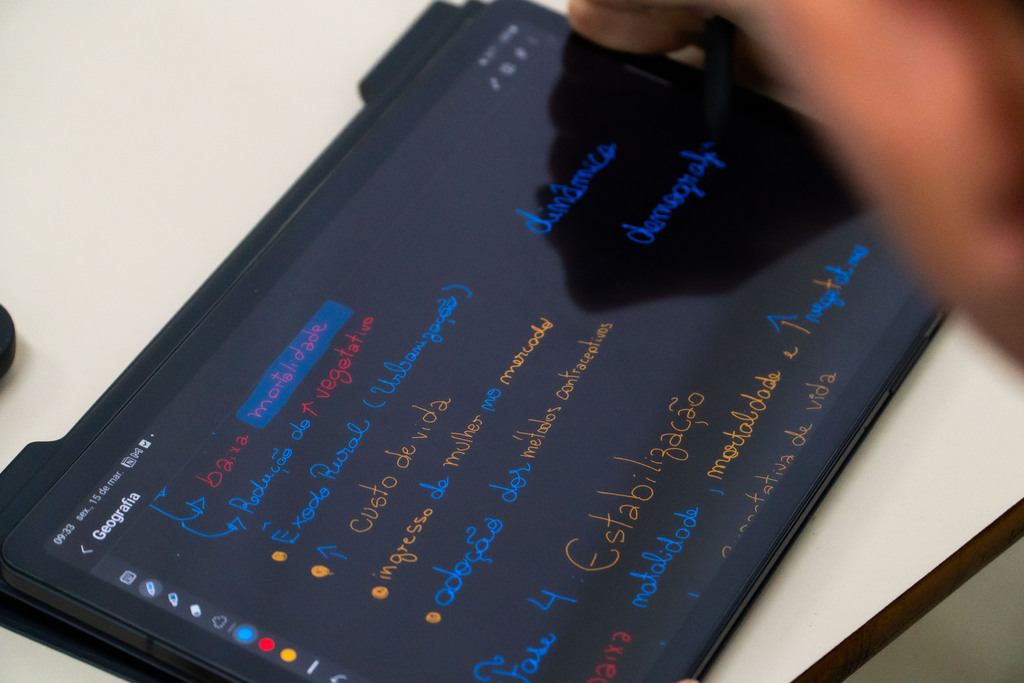 09:33 sex., 15 de mar.
Geografia
baixa mortalidade
Redução do ↑ vegetativo
Êxodo Rural (Urbanização)
↑ Custo de vida
ingresso de mulher no mercado
adoção dos métodos contraceptivos
Fase 4: Estabilização
baixa natalidade, mortalidade e ↑ vegetativo
de vida
dinâmica
demografi